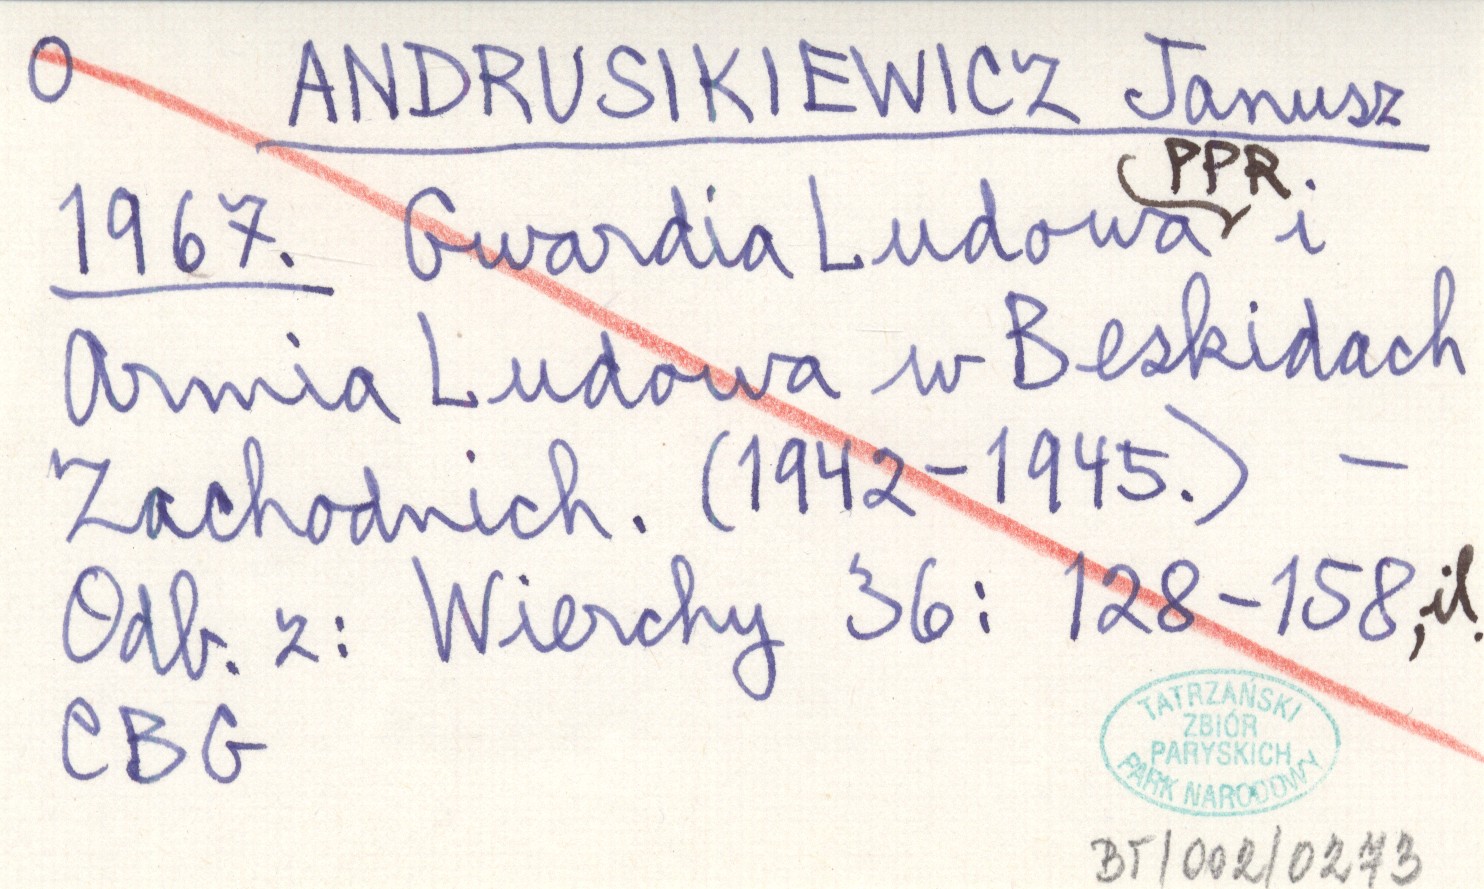 O ANDRUSIKIEWICZ Janusz
PPR.
1967. Gwardia Ludowa i
Armia Ludowa w Beskidach
Zachodnich. (1942-1945.) -
Odb. z: Wierchy 36: 128-158, il.
CBG
TATRZAŃSKI
ZBIÓR
PARYSKICH
PARK NARODOWY
BT/002/0273